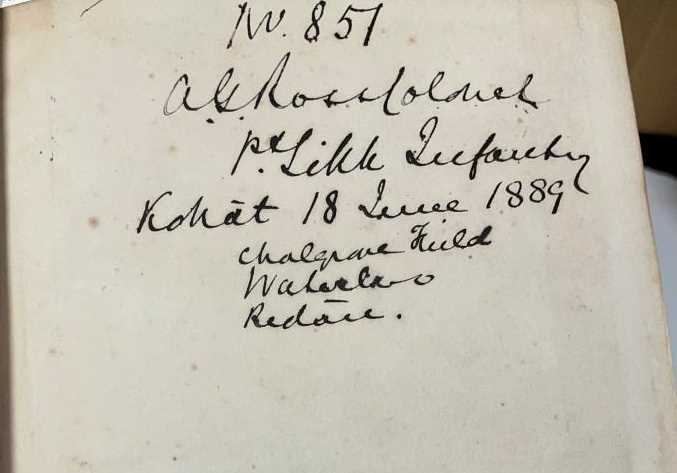 No. 851
A.G. Ross Colonel
1st Sikh Infantry
Kohāt 18 June 1889
Chalgrove Field
Waterloo
Redan.